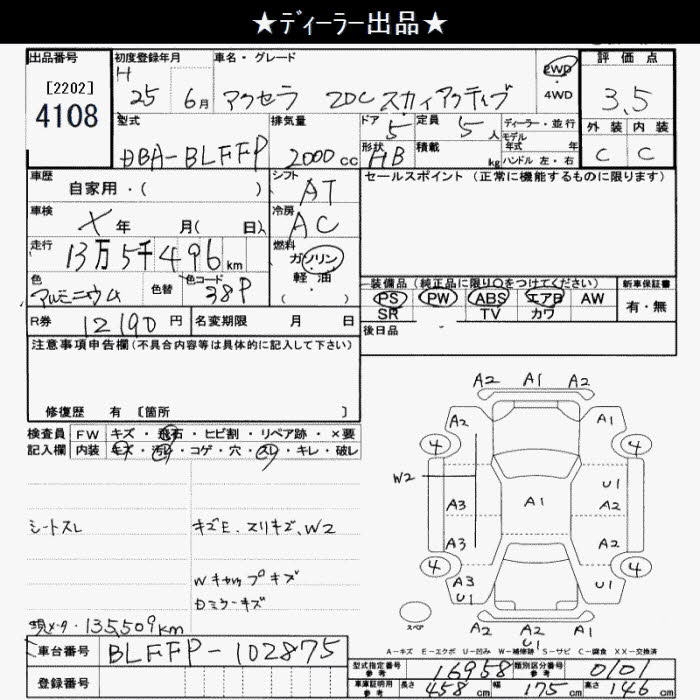 ★ディーラー出品★
出品番号
[2202]
4108
初度登録年月
H
25
6月
車名・グレード
アクセラ 20C スカイアクティブ
2WD
4WD
評価点
3.5
外装 内装
C C
型式
DBA-BLFFP
排気量
2000 cc
ドア
5
定員
5人
形状
HB
積載
kg
ディーラー・並行
モデル
年式 年
ハンドル 左・右
車歴
自家用・( )
シフト
AT
セールスポイント(正常に機能するものに限ります)
車検
× 年 月( 日)
冷房
AC
走行
13万5千496 km
燃料
ガソリン
軽・油
( )
色
アルミニウム
色替
色コード
38P
装備品(純正品に限り○をつけてください)
PS PW ABS エアB AW
SR TV カワ
新車保証書
有・無
後日品
R券
12190円
名変期限 月 日
注意事項申告欄(不具合内容等は具体的に記入して下さい)
修復歴 有 [箇所 ]
検査員
記入欄
FW キズ・飛石・ヒビ割・リペア跡・×要
内装 キズ・汚レ・コゲ・穴・スレ・キレ・破レ
シートスレ
キズE、スリキズ、W2
Wキャップキズ
Dミラーキズ
現メータ・135,509km
A2 A1 A2
A2 A1
4 4
W2
U1
A3 A1 A2
A3 A2
4 4
A3
U1
U1
スペア
A2 A2 A2
U1
A-キズ E-エクボ U-凹み W-補修跡 S-サビ C-腐食 XX-交換済
車台番号
BLFFP-102875
登録番号
型式指定番号
参考
16958
類別区分番号
参考
0101
車庫証明用
参考
長さ 458 cm
幅 175 cm
高さ 146 cm